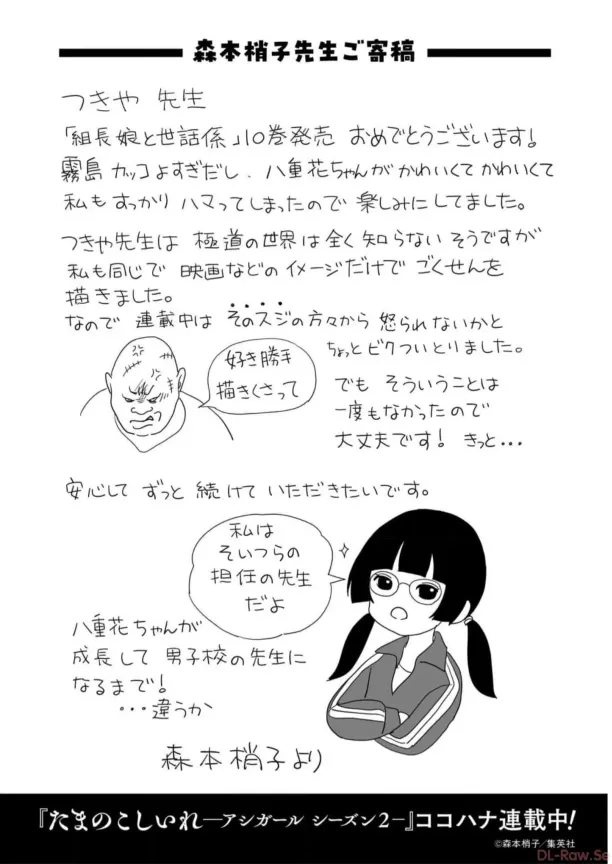 森本梢子先生ご寄稿
つきや 先生
「組長娘と世話係」10巻発売 おめでとうございます!
霧島 カッコよすぎだし、八重花ちゃんがかわいくてかわいくて
私も すっかり ハマってしまったので 楽しみにしてました。
つきや先生は 極道の世界は全く知らない そうですが
私も同じで 映画などの イメージだけで ごくせんを
描きました。
なので 連載中は そのスジの方々から 怒られないかと
ちょっと ビクついとりました。
好き勝手
描きくさって
でも そういうことは
一度もなかったので
大丈夫です! きっと・・・
安心して ずっと 続けて いただきたいです。
私は
そいつらの
担任の先生
だよ
八重花ちゃんが
成長して 男子校の先生に
なるまで!
・・・違うか
森本梢子より
『たまのこしいれ―アシガール シーズン2―』ココハナ連載中!
©森本梢子/集英社
DL-Raw.Se